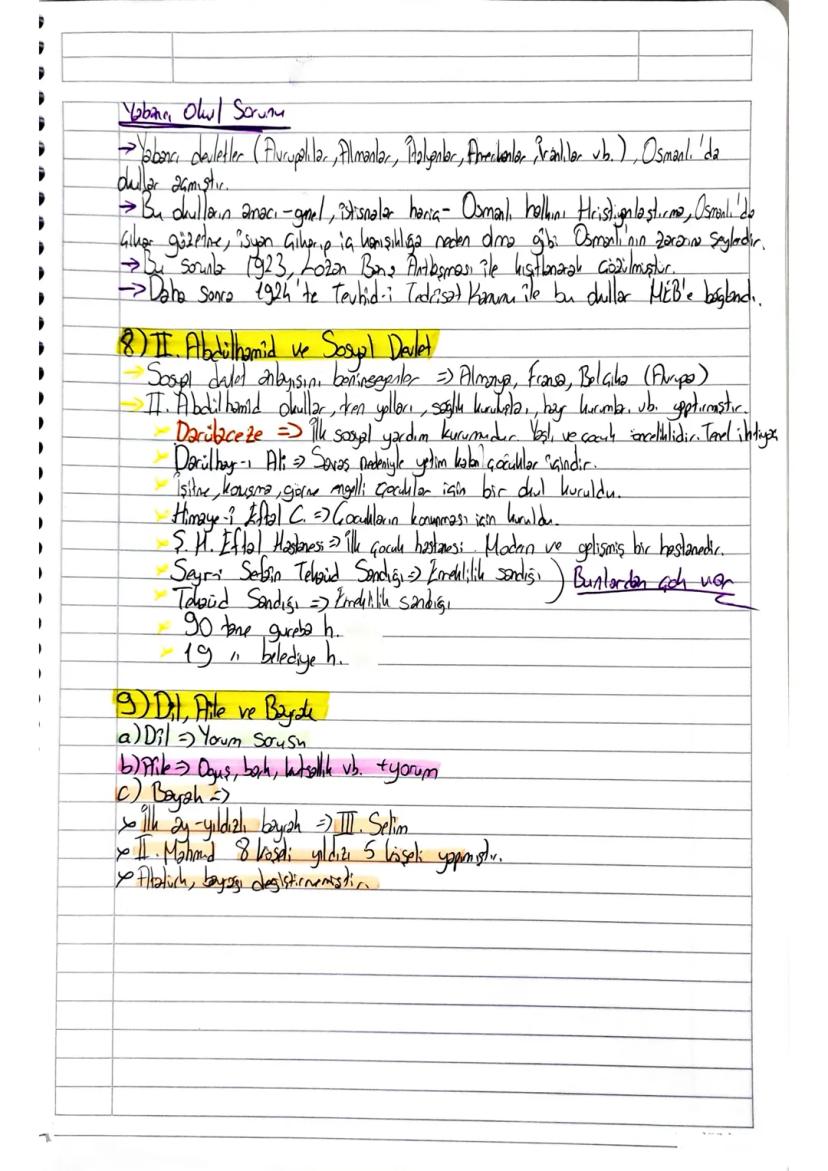 Yabancı Okul Sorunu
→ Yabancı devletler (Avrupalılar, Almanlar, İtalyanlar, Amerikanlar, İranlılar vb.), Osmanlı'da
okullar açmıştır.
→ Bu okulların amacı -genel, istisnalar hariç- Osmanlı halkını Hristiyanlaştırma, Osmanlı'da
çıkar gözetme, isyan çıkarıp iç karışıklığa neden olma gibi Osmanlı'nın zararına şeylerdir.
→ Bu sorunlar 1923, Lozan Barış Antlaşması ile kısıtlanarak çözülmüştür.
→ Daha sonra 1924'te Tevhid-i Tedrisat Kanunu ile bu okullar MEB'e bağlandı.
8) II. Abdülhamid ve Sosyal Devlet
→ Sosyal devlet anlayışını benimseyenler => Almanya, Fransa, Belçika (Avrupa)
→ II. Abdülhamid okullar, tren yolları, sağlık kuruluşları, hayır kurumları vb. yaptırmıştır.
Darülaceze => İlk sosyal yardım kurumudur. Yaşlı ve çocuk önceliklidir. Temel ihtiyaç
Darülhayr-ı Ali => Savaş nedeniyle yetim kalan çocuklar içindir.
İşitme, konuşma, görme engelli çocuklar için bir okul kuruldu.
Himaye-i Eftal C. => Çocukların korunması için kuruldu.
Ş. H. Eftal Hastanesi => İlk çocuk hastanesi. Modern ve gelişmiş bir hastanedir.
Seyr-i Sefain Tekaüd Sandığı => Emeklilik sandığı ) Bunlardan çok var
Tekaüd Sandığı => Emeklilik sandığı
90 tane gureba h.
19 " belediye h.
9) Dil, Aile ve Bayrak
a) Dil => Yorum sorusu
b) Aile => Oguş, bark, kutsallık vb. + yorum
c) Bayrak =>
İlk ay-yıldızlı bayrak => III. Selim
II. Mahmud 8 köşeli yıldızı 5 köşeli yapmıştır.
Atatürk, bayrağı değiştirmemiştir.